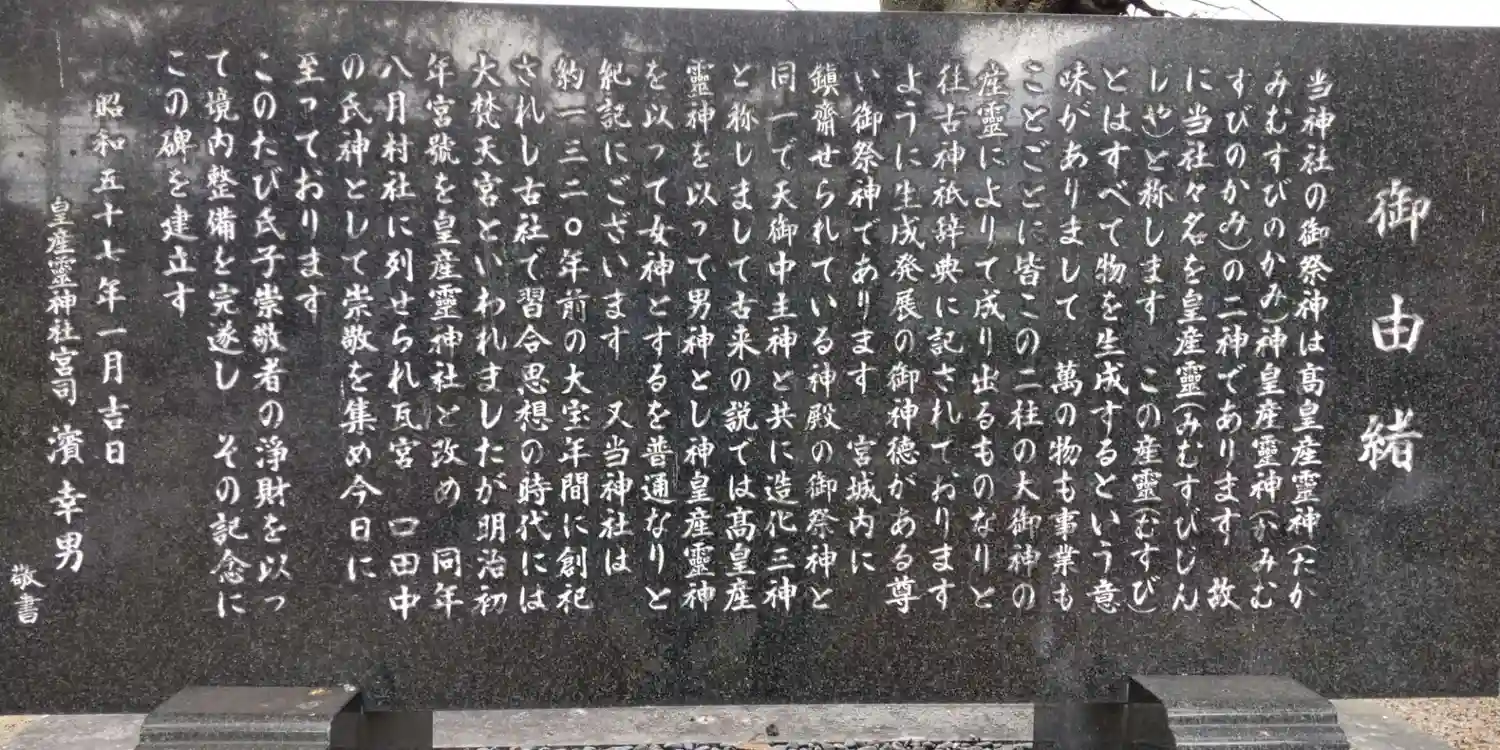 御由緒
当神社の御祭神は髙皇産靈神(たか
みむすびのかみ)神皇産靈神(かみむ
すびのかみ)の二神であります 故
に当社々名を皇産靈(みむすびじん
じや)と称します この産靈(むすび)
とはすべて物を生成するという意
味がありまして 萬の物も事業も
ことごとに皆この二柱の大御神の
産靈によりて成り出るものなりと
往古神祇辞典に記されております
ように生成発展の御神徳がある尊
い御祭神であります 宮城内に
鎮齋せられている神殿の御祭神と
同一で天御中主神と共に造化三神
と称しまして古来の説では髙皇産
靈神を以って男神とし神皇産靈神
を以って女神とするを普通なりと
紀記にございます 又当神社は
約一三二〇年前の大宝年間に創祀
されし古社で習合思想の時代には
大梵天宮といわれましたが明治初
年宮號を皇産靈神社と改め 同年
八月村社に列せられ瓦宮 口田中
の氏神として崇敬を集め今日に
至っております
このたび氏子崇敬者の浄財を以っ
て境内整備を完遂し その記念に
この碑を建立す
昭和五十七年一月吉日
皇産靈神社宮司 濱幸男
敬書